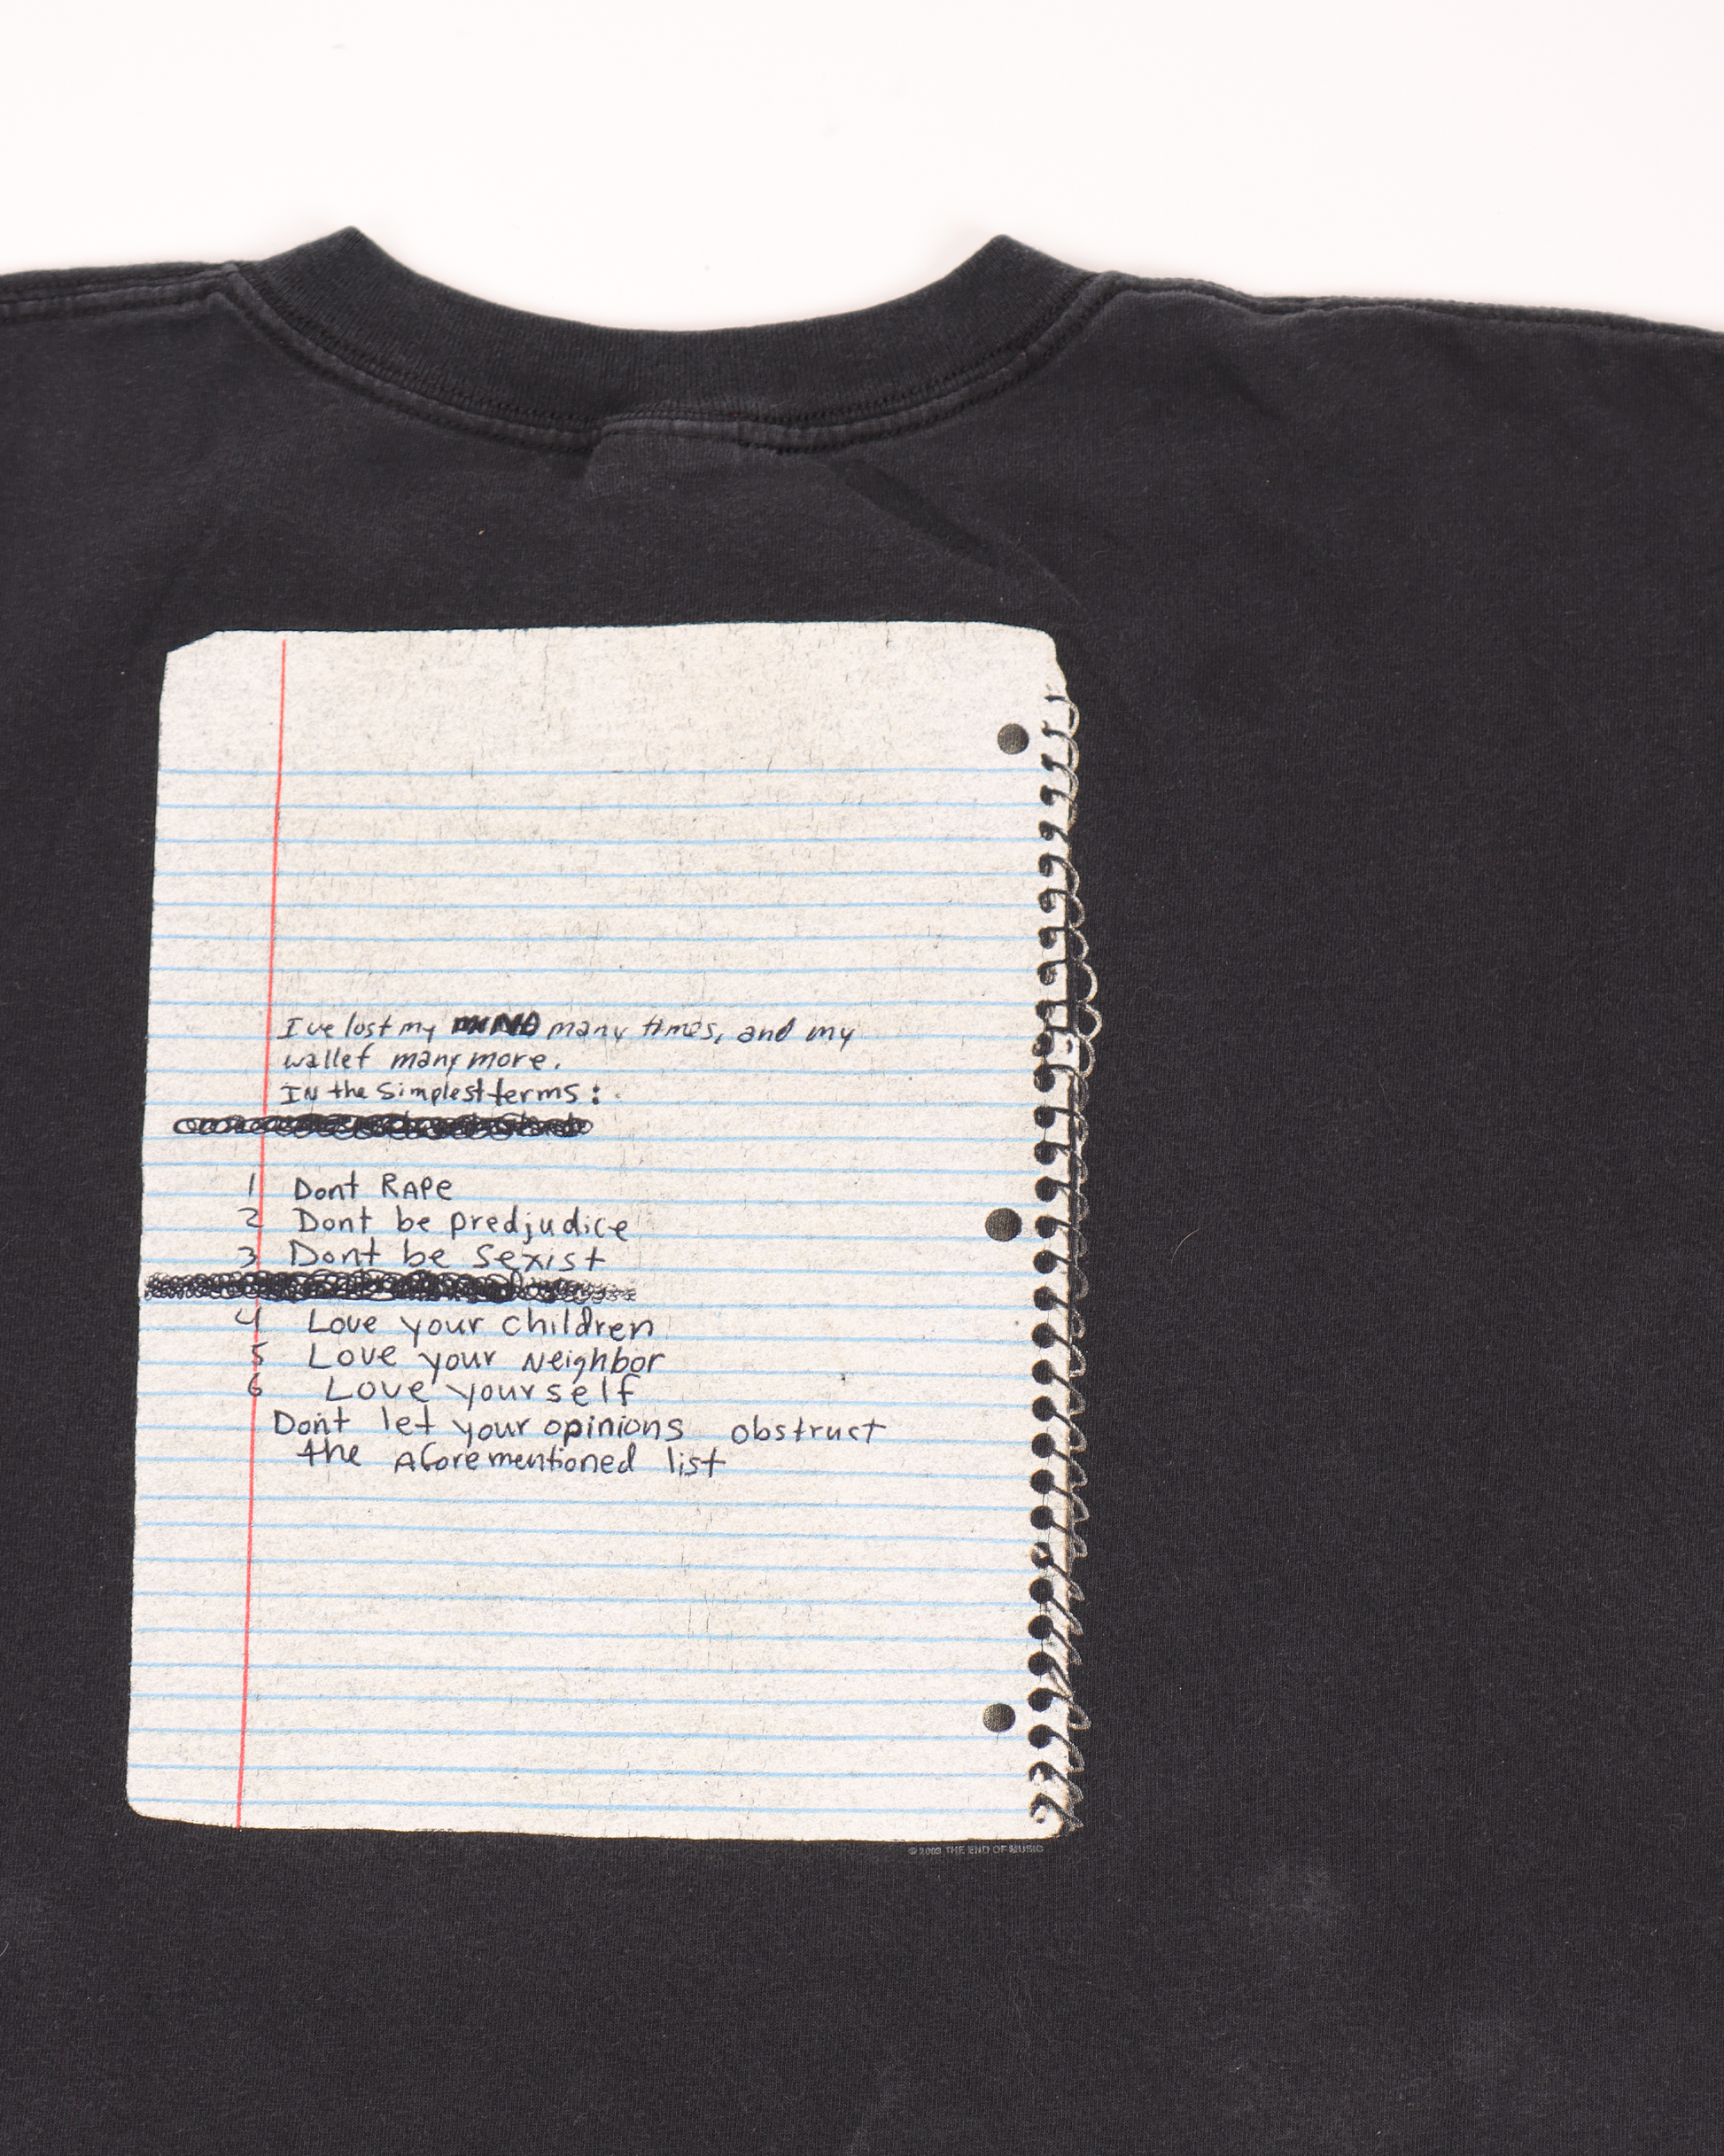 I've lost my MIND many times, and my
wallet many more.
IN the simplest terms:
1 Dont RAPe
2 Dont be predjudice
3 Dont be sexist
4 Love your children
5 Love your Neighbor
6 Love yourself
Dont let your opinions obstruct
the aforementioned list
© 2003 THE END OF MUSIC